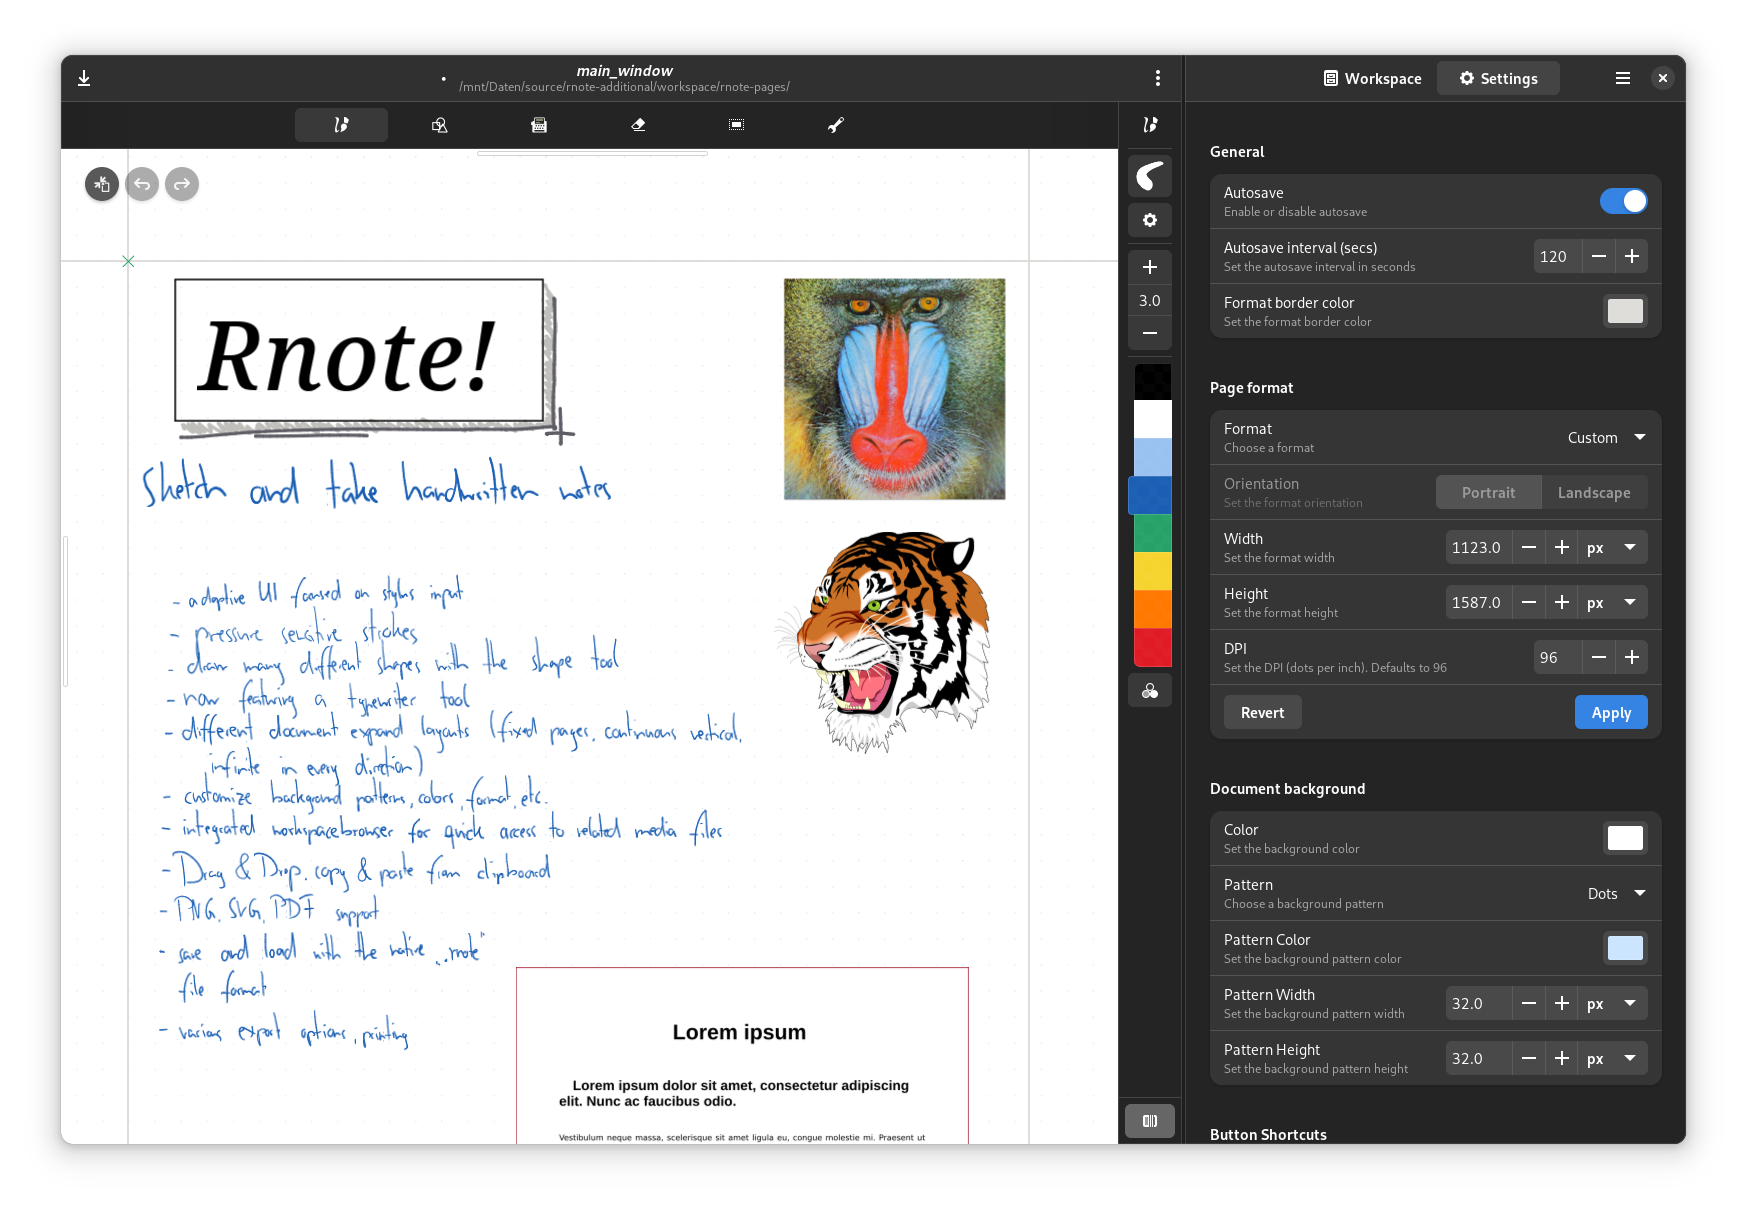 main_window
/mnt/Daten/source/rnote-additional/workspace/rnote-pages/
Workspace
Settings
Rnote!
Sketch and take handwritten notes
- adaptive UI focused on stylus input
- pressure sensitive strokes
- draw many different shapes with the shape tool
- now featuring a typewriter tool
- different document expand layouts (fixed pages, continuous vertical,
infinite in every direction)
- customize background patterns, colors, format, etc.
- integrated workspacebrowser for quick access to related media files
- Drag & Drop, copy & paste from clipboard
- PNG, SVG, PDF support
- save and load with the native „.rnote"
file format
- various export options, printing
Lorem ipsum
Lorem ipsum dolor sit amet, consectetur adipiscing
elit. Nunc ac faucibus odio.
Vestibulum neque massa, scelerisque sit amet ligula eu, congue molestie mi. Praesent ut
3.0
General
Autosave
Enable or disable autosave
Autosave interval (secs)
Set the autosave interval in seconds
120
Format border color
Set the format border color
Page format
Format
Choose a format
Custom
Orientation
Set the format orientation
Portrait
Landscape
Width
Set the format width
1123.0
px
Height
Set the format height
1587.0
px
DPI
Set the DPI (dots per inch). Defaults to 96
96
Revert
Apply
Document background
Color
Set the background color
Pattern
Choose a background pattern
Dots
Pattern Color
Set the background pattern color
Pattern Width
Set the background pattern width
32.0
px
Pattern Height
Set the background pattern height
32.0
px
Button Shortcuts